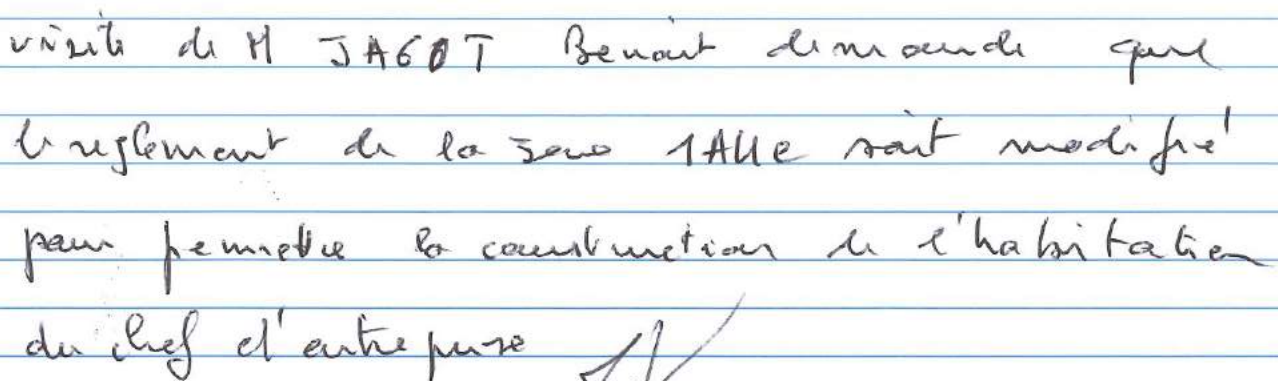 visite de M JAGOT Benoit demande que
le reglement de la zone 1AUe soit modifié
pour permettre la construction de l'habitation
du chef d'entreprise